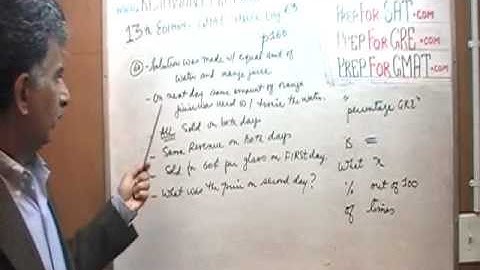 13th Edition - GMAT
p160
- Solution was made w/ equal amt of
water and orange juice
- On next day same amount of orange
juice was used w/ twice the water.
- All Sold on both days
- Same Revenue on both days
- Sold for 60¢ per glass on FIRST day.
- What was the price on second day?
PREPFORSAT.com
PREPFORGRE.com
PREPFORGMAT.com
"percentage GRE"
is =
What x
% out of 100
of times